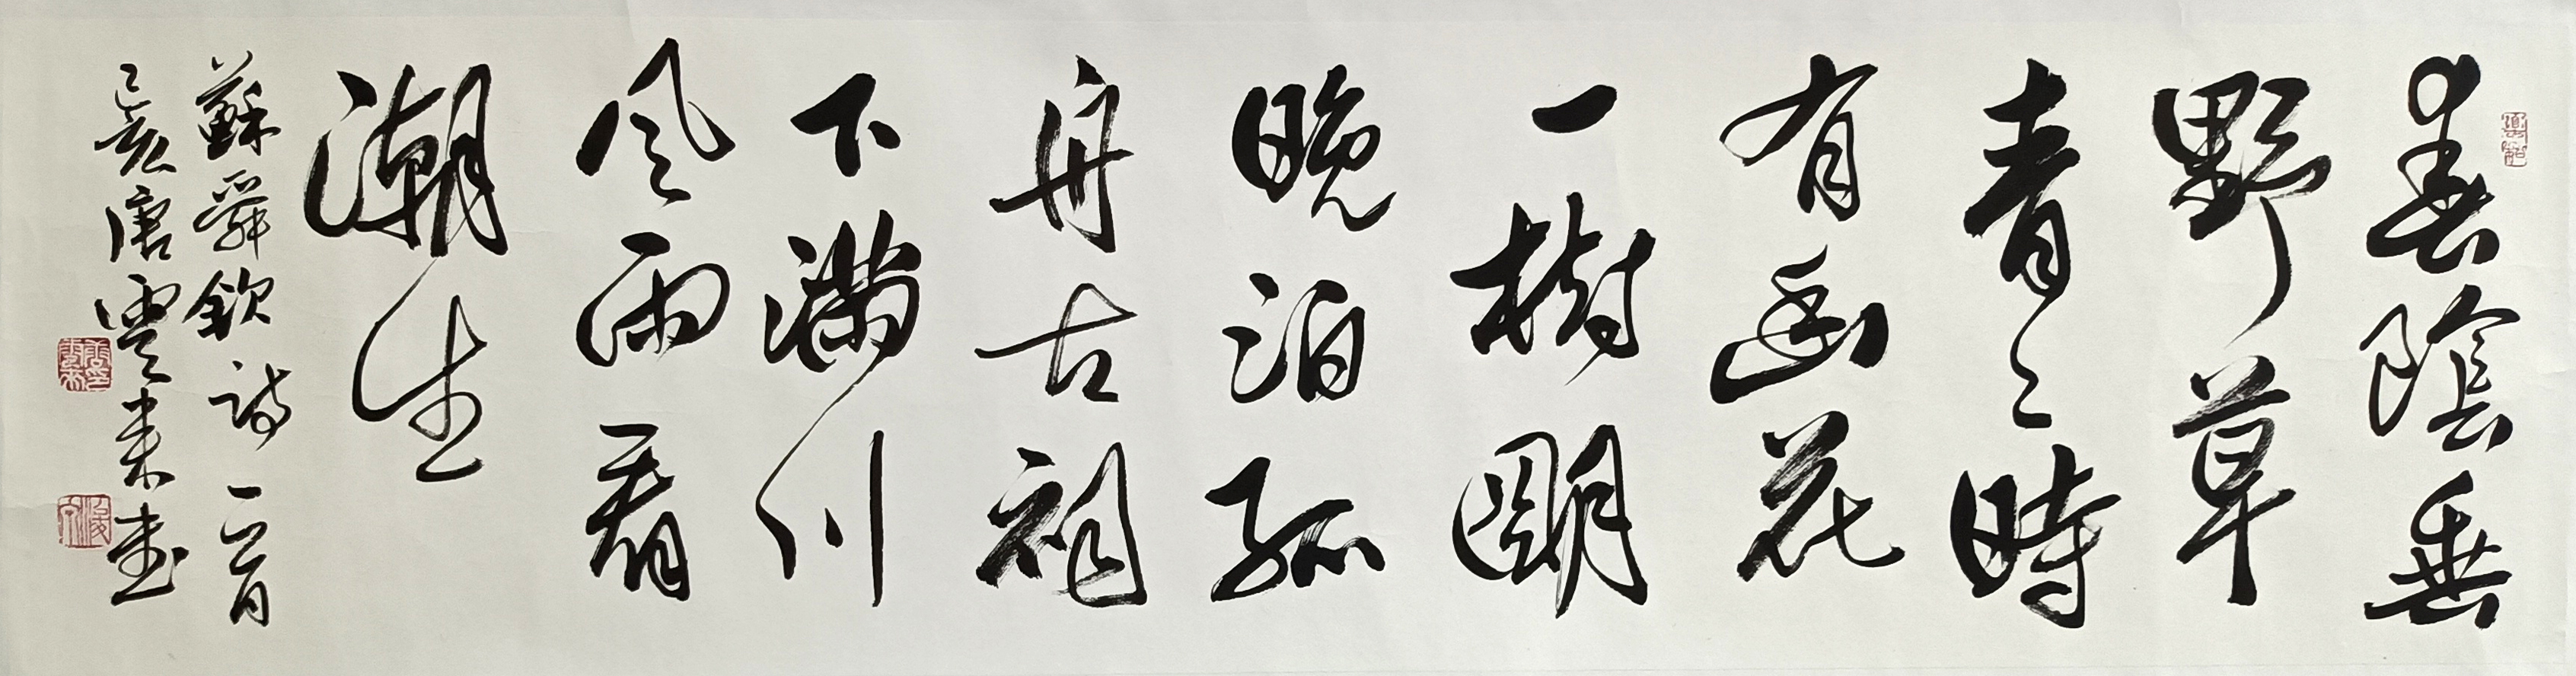 春陰垂
野草
青々時
有幽花
一樹明
晚泊孤
舟古祠
下滿川
風雨看
潮生
蘇舜欽詩一首
己亥唐雲來書